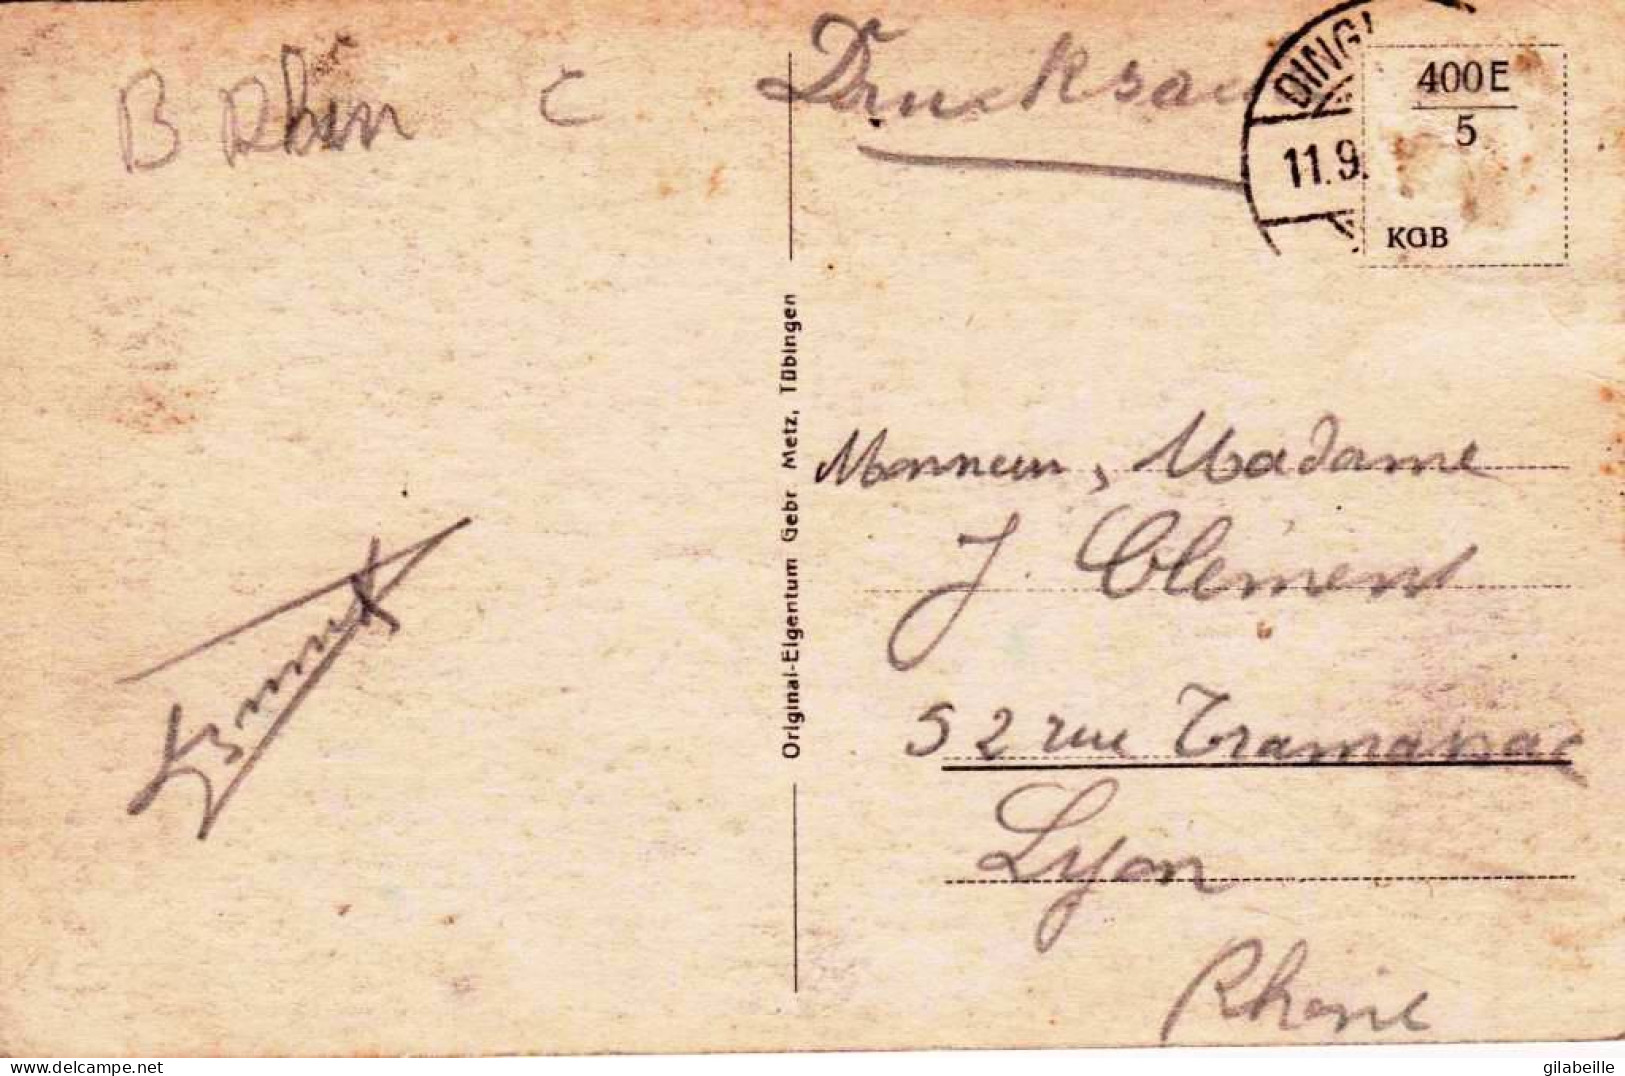 B Rhin C
Drucksa
DINGL
11.9.
400E
5
KGB
Original-Eigentum Gebr Metz, Tübingen
Monsieur, Madame
J. Clément
52 rue Tramassac
Lyon
Rhône
delcampe.net
gilabeille